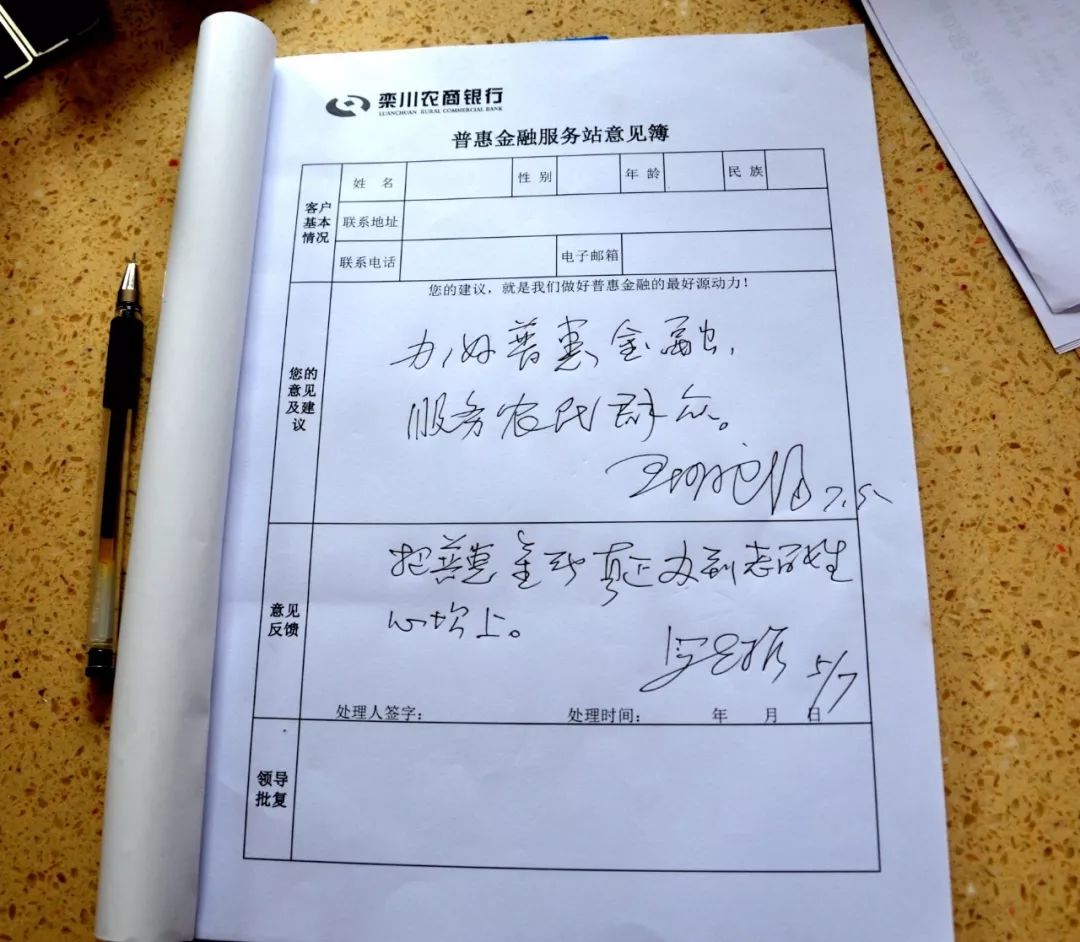 栾川农商银行
LUANCHUAN RURAL COMMERCIAL BANK
普惠金融服务站意见簿
客户基本情况
姓 名 性 别 年 龄 民 族
联系地址
联系电话 电子邮箱
您的意见及建议
您的建议，就是我们做好普惠金融的最好源动力！
办好普惠金融，
服务农民群众。
7.5
意见反馈
把普惠金融真正办到老百姓
心坎上。
5/7
处理人签字： 处理时间： 年 月 日
领导批复